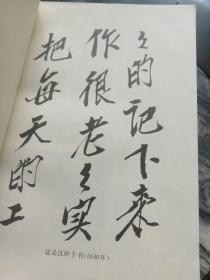 把每天的工
作很老々实
々的记下来
这是沈醉手书(1940年)